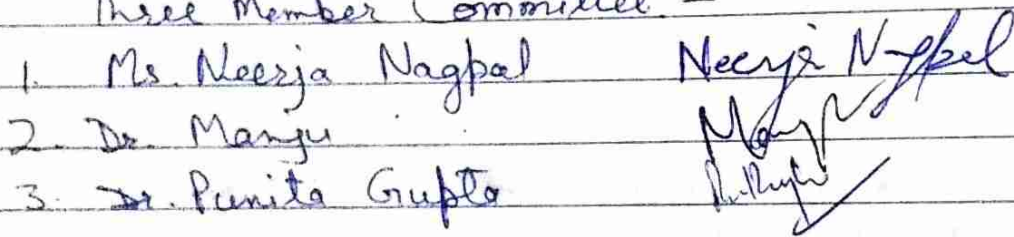 Three Member Committee. -
1. Ms. Neerja Nagpal Neerja Nagpal
2. Dr. Manju Manju
3. Dr. Punita Gupta